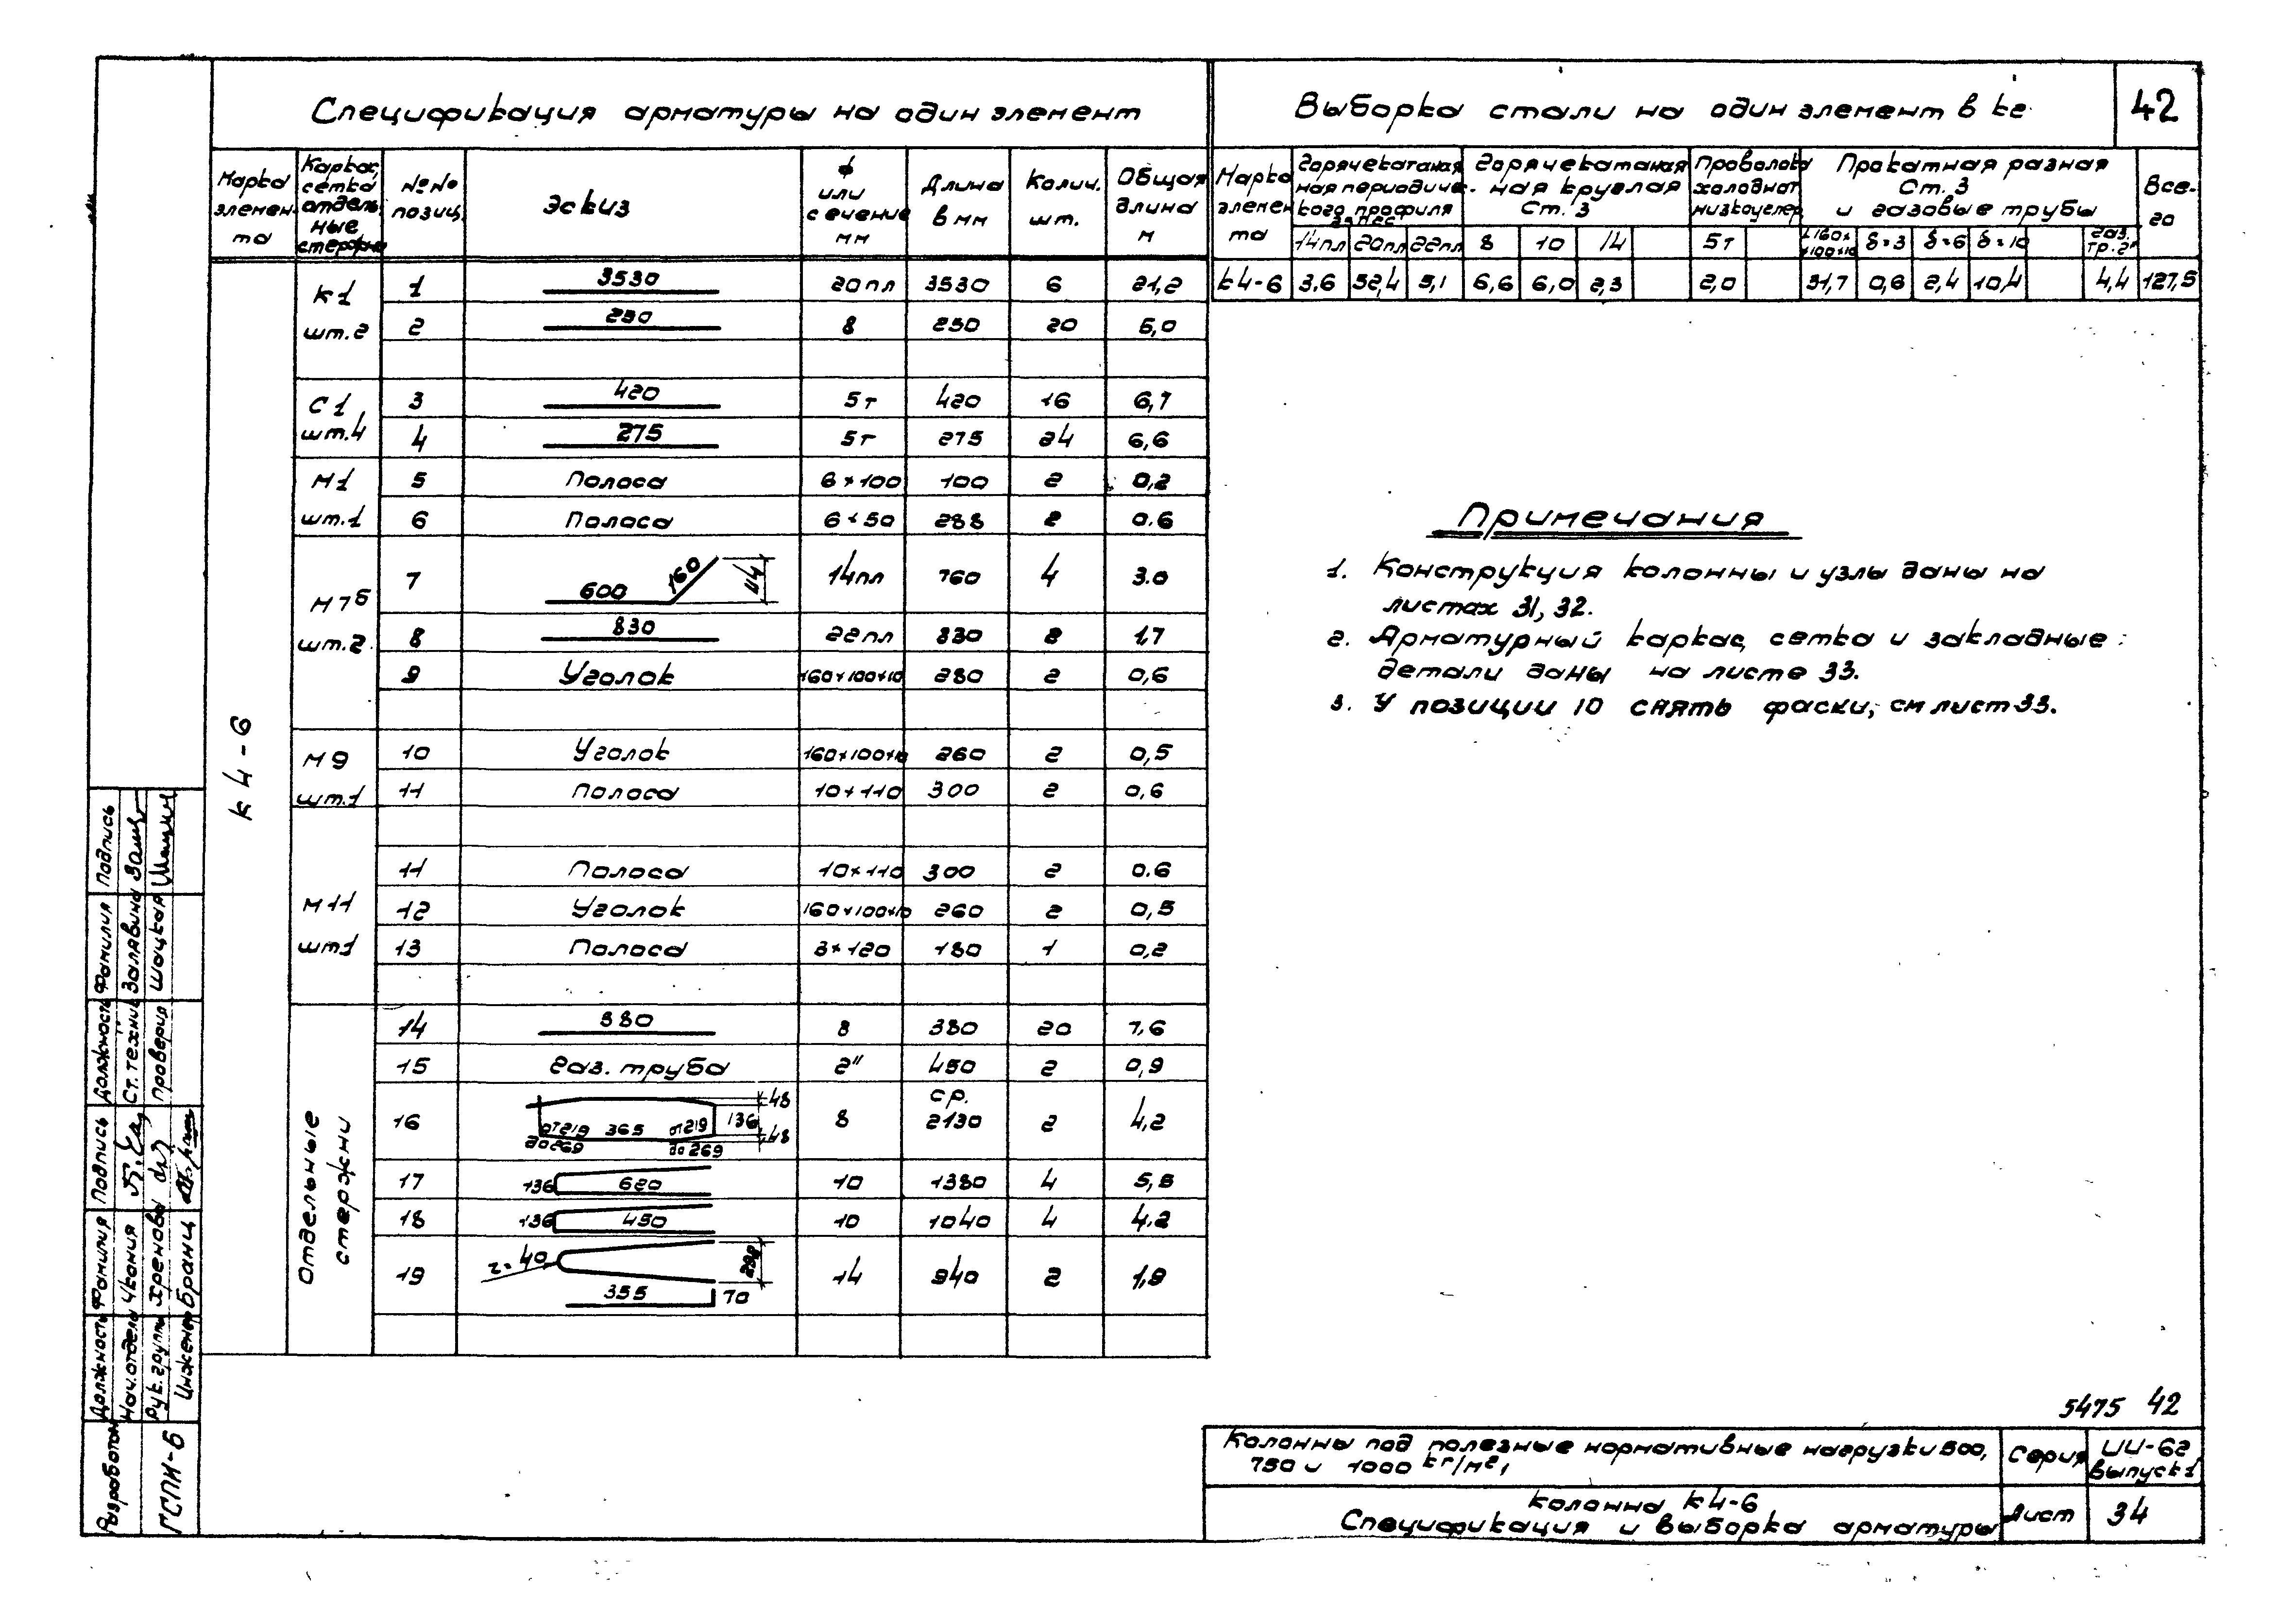 Спецификация арматуры на один элемент
Выборка стали на один элемент в кг
42
Марка элемента | Каркас, сетка отдельные стержни | №№ позиц. | Эскиз | ф или сечение мм | Длина в мм | Колич. шт. | Общая длина м
К4-6
К1 шт.2 | 1 | 3530 | 20пл | 3530 | 6 | 21,2
2 | 250 | 8 | 250 | 20 | 5,0
С1 шт.4 | 3 | 420 | 5т | 420 | 16 | 6,7
4 | 275 | 5т | 275 | 24 | 6,6
М1 шт.1 | 5 | Полоса | 6×100 | 100 | 2 | 0,2
6 | Полоса | 6×50 | 288 | 2 | 0.6
М7б шт.2 | 7 | 600 160 114 | 14пл | 760 | 4 | 3.0
8 | 830 | 22пл | 830 | 2 | 1,7
9 | Уголок | 160×100×10 | 280 | 2 | 0,6
М9 шт.1 | 10 | Уголок | 160×100×10 | 260 | 2 | 0,5
11 | Полоса | 10×110 | 300 | 2 | 0,6
М11 шт1 | 11 | Полоса | 10×110 | 300 | 2 | 0.6
12 | Уголок | 160×100×10 | 260 | 2 | 0,5
13 | Полоса | 3×120 | 180 | 1 | 0,2
Отдельные стержни | 14 | 380 | 8 | 380 | 20 | 7,6
15 | Газ. труба | 2" | 450 | 2 | 0,9
16 | от219 до269 365 от219 до269 136 48 48 | 8 | ср. 2130 | 2 | 4,2
17 | 136 620 | 10 | 1380 | 4 | 5,5
18 | 136 450 | 10 | 1040 | 4 | 4.2
19 | r=40 298 355 70 | 14 | 940 | 2 | 1,9
Марка элемента | Горячекатаная периодического профиля | Горячекатаная круглая Ст. 3 | Проволока холоднот. низкоуглер. | Прокатная разная Ст. 3 и газовые трубы | Всего
14пл | 20пл | 22пл | 8 | 10 | 14 | 5т | L160××100×10 | δ=3 | δ=6 | δ=10 | Газ. тр. 2"
К4-6 | 3.6 | 52,4 | 5,1 | 6,6 | 6,0 | 2,3 | 2,0 | 31,7 | 0,6 | 2,4 | 10,4 | 4,4 | 127,5
Примечания
1. Конструкция колонны и узлы даны на
листах 31, 32.
2. Арматурный каркас, сетка и закладные
детали даны на листе 33.
3. У позиции 10 снять фаски, см лист 33.
Подпись
Фамилия Залявина Шацкая
Должность Ст. техник Проверил
Подпись
Фамилия Чкония Хренова Бранц
Должность Нач. отдела Рук. группы Инженер
Разработал ГСПИ-6
5475 42
Колонны под полезные нормативные нагрузки 500,
750 и 1000 кг/м²,
Серия ИИ-62 Выпуск 1
Колонна К4-6
Спецификация и выборка арматуры
Лист 34